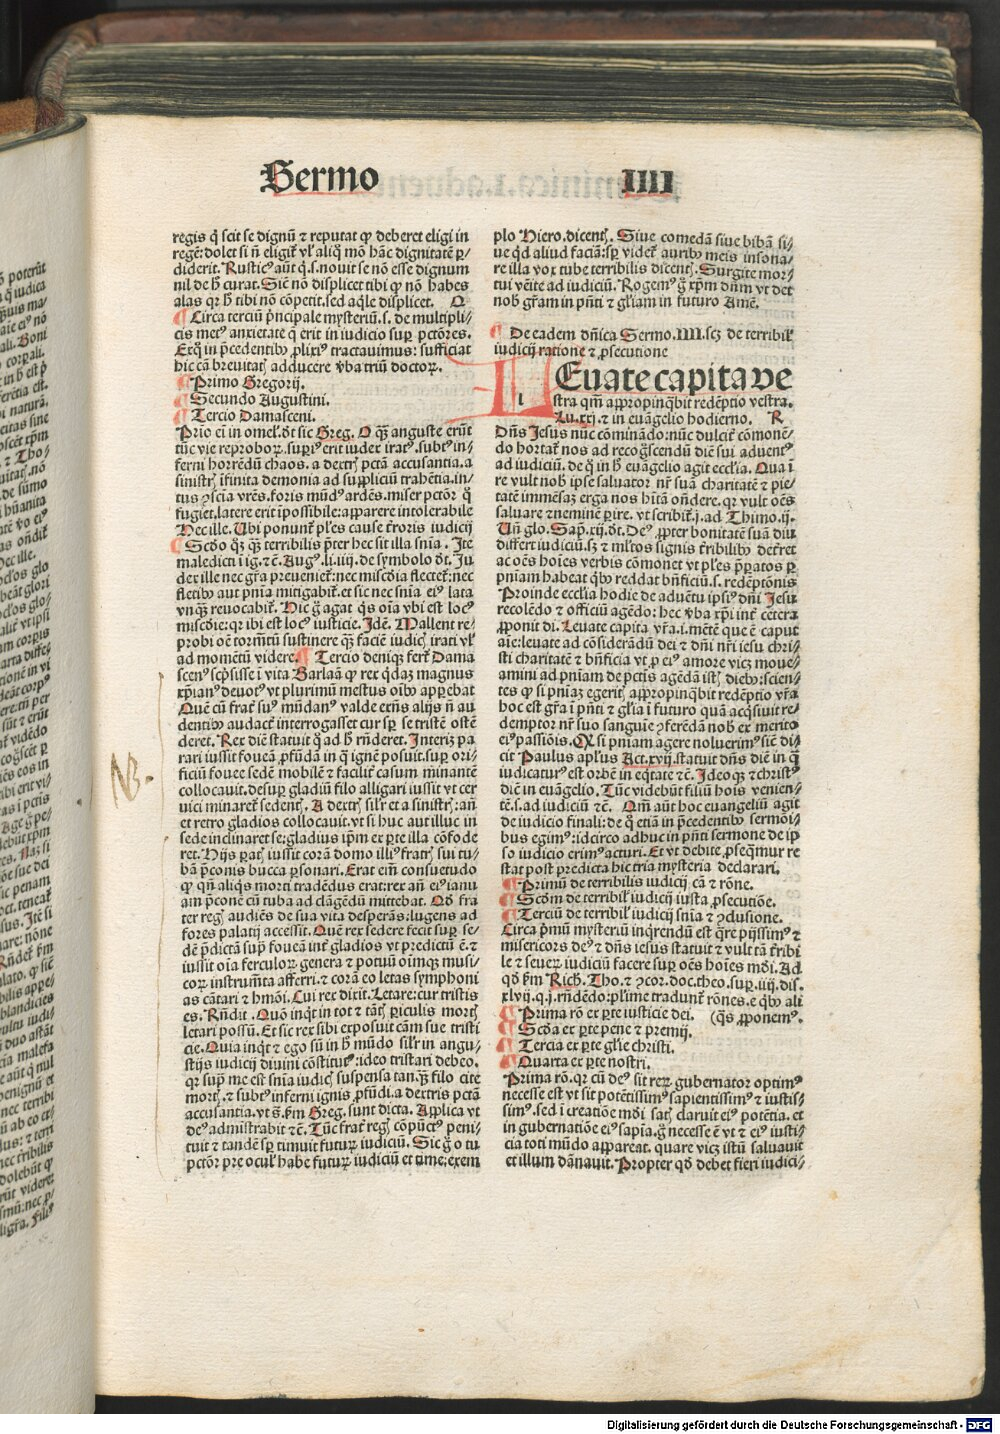 Sermo
IIII
regis q̇ scit se dignũ ⁊ reputat ꝙ deberet eligi in
regẽ: dolet si ñ eligit᷑ vl᷑ aliq̃ mõ hãc dignitatẽ ꝑ-
diderit. Rustic⁹ aũt q̇.s. nouit se nõ esse dignum
nil de h̃ curat. Sic̃ nõ displicet tibi ꝙ nõ habes
alas qꝛ h̃ tibi nõ cõpetit. sed aq̃le displicet. Q
Circa terciũ pͥncipale mysteriũ .s. de multipli-
cis met⁹ anxietate q̃ erit in iudicio suꝑ pctõres.
Exq̇ in p̃cedentib⁹ ꝓlixi⁹ tractauimus: sufficiat
hic cã breuitat᷑ adducere v̓ba triũ doctoꝝ.
Primo Gregorij.
Secundo Augustini.
Tercio Damasceni.
Prĩo em̃ in omel᷑. dt̃ sic Greg. O q̃ꝫ anguste erũt
tũc vie reproboꝝ. suꝑi⁹ erit iudex irat⁹. subt⁹ in-
ferni horrẽdũ chaos. a dextr᷑ pctã accusantia. a
sinistr᷑ ĩfinita demonia ad suppliciũ trahẽtia. in-
tus ꝯsciẽa vrẽs. foris mũd⁹ ardẽs. miser pctõr q̊
fugiet. latere erit ĩpossibile: apparere intolerabile
Hec ille. Ubi ponunt᷑ pl̃es cause t̃roris iudicij
Scđo q̊ꝫ q̃ꝫ terribilis p̃ter hec sit illa sñia. Ite
maledicti ĩ ig. ⁊c̃. Aug⁹. li. iiij. de symbolo dt̃. Iu
dex ille nec gr̃a preueniet᷑: nec miscďia flectet᷑: nec
fletib⁹ aut pñia mitigabit᷑. et sic nec sñia ei⁹ lata
vnq̃ꝫ reuocabit᷑. Hic g̊ agat q̇s oĩa vbi est loc⁹
miscďie: qꝛ ibi est loc⁹ iusticie. Idẽ. Mallent re-
probi oẽ tormẽtũ sustinere q̃ꝫ faciẽ iudic᷑ irati vl᷑
ad momẽtũ videre. Tercio deniqꝫ fert᷑ Dama
scen⁹ scp̃sisse ĩ vita Barlaã ꝙ rex q̇daꝫ magnus
xp̃ian⁹ deuot⁹ vt plurimũ mestus oĩb⁹ apparebat
Quẽ cũ frat᷑ su⁹ mũdan⁹ valde extr̃is alijs ñ au
dentib⁹ audact᷑ interrogasset cur sꝑ se tristẽ ostẽ
deret. Rex diẽ statuit q̊ ad h̃ rñderet. Interiꝫ pa
rari iussit foueã ꝓfũdã in q̃ ignẽ posuit. suꝑ ori-
ficiũ fouee sedẽ mobilẽ ⁊ facilit᷑ casum minantẽ
collocauit. desuꝑ gladiũ filo alligari iussit vt cer
uici minaret᷑ sedent᷑. A dextr᷑ sil᷑r et a sinistr᷑: añ
et retro gladios collocauit. vt si huc aut illuc in
sede inclinaret se: gladius ip̃m ex ꝑte illa cõfode
ret. Hijs ꝑat᷑ iussit corã domo illi⁹ fratr᷑ sui tu-
bã p̃conis bucca ꝑsonari. Erat em̃ consuetudo
ꝙ qñ aliq̇s morti tradẽdus erat: rex añ ei⁹ ianu
am p̃conẽ cũ tuba ad clãgẽdũ mittebat. Qđ fra
ter reg᷑ audiẽs de sua vita desperãs: lugens ad
fores palatij accessit. Quẽ rex sedere fecit suꝑ se-
dẽ p̃dictã suꝑ foueã int᷑ gladios vt predictũ ẽ. ⁊
iussit oĩa ferculoꝝ genera ⁊ potuũ oĩmqꝫ musi-
coꝝ instrum̃ta afferri. ⁊ corã eo letas symphoni
as cãtari ⁊ hm̃õi. Cui rex dixit. Letare: cur tristis
es. Rñdit. Quõ inq̇t in tot ⁊ tãt᷑ ꝑiculis mort᷑
letari possũ. Et sic rex sibi exposuit cãm sue tristi
cie. Quia inq̇t ⁊ ego sũ in h̃ mũdo sil᷑r in angu-
stijs iudicij diuini cõstitut⁹: ideo tristari debeo.
qꝛ suꝑ me est sñia iudic᷑ suspensa tanq̃ꝫ filo cite
mort᷑. ⁊ subt⁹ inferni ignis ꝓfũdi. a dextris pctã
accusantia. vt s̃. ẜm Greg. sunt dicta. Applica vt
de⁹ admistrabit ⁊c̃. Tũc frat᷑ reg᷑ cõpũct⁹ peni-
tuit ⁊ tandẽ sꝑ timuit futurũ iudiciũ. Sic g̊ o tu
pctõr pre ocul᷑ habe futuꝝ iudiciũ et time: exem
plo Hiero. dicent᷑. Siue comedã siue bibã si-
ue q̇d aliud faciã: sꝑ videt᷑ aurib⁹ meis insona-
re illa vox tube terribilis dicent᷑. Surgite mor-
tui venite ad iudiciũ. Rogem⁹ g̊ xp̃m dñm vt det
nob᷑ gr̃am in pñti ⁊ gl̃iam in futuro Amẽ.
De eadem dñica Sermo. IIII. scꝫ de terribil᷑
iudicij ratione ⁊ ꝓsecutione
LEuate capita ve
stra qm̃ appropinq̃bit redẽptio vestra.
Lu. xxj. ⁊ in euãgelio hodierno. R
Dñs Jesus nũc cominãdo: nũc dulcit᷑ cõmonẽ-
do hortat᷑ nos ad recog̃scendũ diẽ sui aduent⁹
ad iudiciũ. de q̊ in h̃ euãgelio agit ecclĩa. Qua ĩ
re vult nob᷑ ipse saluator nr̃ suã charitatẽ ⁊ pie-
tatẽ immẽsaꝫ erga nos hĩtã oñdere. qꝛ vult oẽs
saluare ⁊ neminẽ ꝑire. vt scribit᷑ .j. ad Thimo. ij.
Uñ glo. Sap. xij. dt̃. De⁹ ꝓpter bonitatẽ suã diu
differt iudiciũ. sꝫ ⁊ ml̃tos signis t̃ribilib⁹ det̃ret
ac oẽs hoĩes verbis cõmonet vt pl̃es p̃paratos ꝑ
pñiam habeat q̇b⁹ reddat bñficiũ .s. redẽptõnis
Proinde ecclĩa hodie de aduẽtu ipsi⁹ dñi Jesu
recolẽdo ⁊ officiũ agẽdo: hec v̓ba xp̃i int᷑ cetera
ꝓponit di. Leuate capita vr̃a .i. mẽtẽ que ẽ caput
aĩe: leuate ad cõsiderãdũ dei ⁊ dñi nr̃i iesu chri-
sti charitatẽ ⁊ bñficia vt ꝓ ei⁹ amore vicꝫ moue-
amini ad pñiam de pctis agẽdã ist᷑ dieb⁹: scien-
tes ꝙ si pñiaꝫ egerit᷑ appropinq̃bit redẽptio vr̃a
hoc est gr̃a ĩ pñti ⁊ gl̃ia ĩ futuro quã acq̇siuit re-
demptor nr̃ suo sanguie ⁊ ferẽdã nob᷑ ex merito
ei⁹ passiõis. Qꝙ si pñiam agere noluerim⁹ sic̃ di-
cit Paulus apl̃us Act. xvij. statuit dñs diẽ in q̊
iudicatur⁹ est orbẽ in eq̇tate ⁊c̃. Ideoqꝫ ⁊ christ⁹
diẽ in euãgelio. Tũc videbũt filiũ hoĩs venien-
tẽ .s. ad iudiciũ ⁊c̃. Qm̃ aũt hoc euangeliũ agit
de iudicio finali: de q̊ etiã in p̃cedentib⁹ sermoĩ-
bus egim⁹: idcirco adhuc in pñti sermone de ip̃
so iudicio erim⁹ acturi. Et vt debite ꝓseq̃mur re
stat post predicta hic tria mysteria declarari.
Primũ de terribilis iudicij cã ⁊ rõne.
Scďm de terribil᷑ iudicij iusta ꝓsecutiõe.
Terciũ de terribil᷑ iudicij sñia ⁊ ꝯclusione.
Circa pͥmũ mysteriũ inq̇rendũ est q̃re pijssim⁹ ⁊
misericors de⁹ ⁊ dñs iesus statuit ⁊ vult tã t̃ribi
le ⁊ seueꝝ iudiciũ facere suꝑ oẽs hoĩes mũdi. Ad
qđ ẜm Rich. Tho. ⁊ ꝯcor. doc. theo. suꝑ. iiij. dis.
xlvij. q. j. rñdẽdo: pl᷑ime tradunt᷑ rõnes. e q̇b⁹ ali
Prima rõ ex ꝑte iusticie dei. (q̃s ꝓponem⁹.
Scďa ex ꝑte pene ⁊ premij.
Tercia ex ꝑte gl̃ie christi.
Quarta ex ꝑte nostri.
Prima rõ. qꝛ cũ de⁹ sit reꝝ gubernator optim⁹
necesse est vt sit potẽtissim⁹ sapientissim⁹ ⁊ iustis-
sim⁹. sed ĩ creatiõe mũdi sat᷑ claruit ei⁹ potẽtia. et
in gubernatiõe ei⁹ sapĩa. g̊ necesse ẽ vt ⁊ ei⁹ iusti-
cia toti mũdo appareat. quare vicꝫ istũ saluauit
et illum dãnauit. Propter qđ debet fieri iudici-
NB.
Digitalisierung gefördert durch die Deutsche Forschungsgemeinschaft - DFG